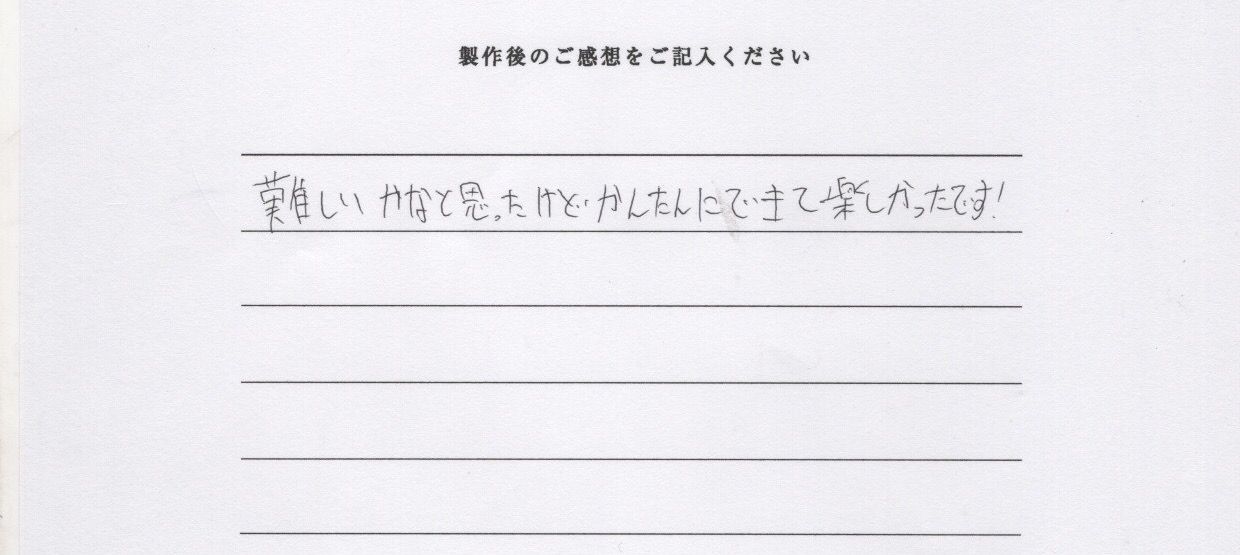 製作後のご感想をご記入ください
難しいかなと思ったけどかんたんにできて楽しかったです!